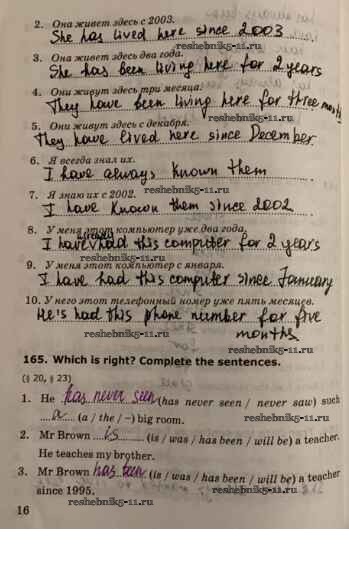 2. Она живет здесь с 2003.
She has lived here since 2003
reshebnik5-11.ru
3. Она живет здесь два года.
She has been living here for 2 years
4. Они живут здесь три месяца.
They have been living here for three months
reshebnik5-11.ru
5. Они живут здесь с декабря.
They have lived here since December
6. Я всегда знал их.
I have always known them
reshebnik5-11.ru
7. Я знаю их с 2002.
I have known them since 2002
8. У меня этот компьютер уже два года.
already
I have had this computer for 2 years
reshebnik5-11.ru
9. У меня этот компьютер с января.
I have had this computer since January
10. У него этот телефонный номер уже пять месяцев.
He's had this phone number for five
months
reshebnik5-11.ru
165. Which is right? Complete the sentences.
(§ 20, § 23)
1. He has never seen (has never seen / never saw) such
a (a / the / –) big room. reshebnik5-11.ru
2. Mr Brown is (is / was / has been / will be) a teacher.
He teaches my brother.
3. Mr Brown has been (is / was / has been / will be) a teacher
since 1995. reshebnik5-11.ru
16